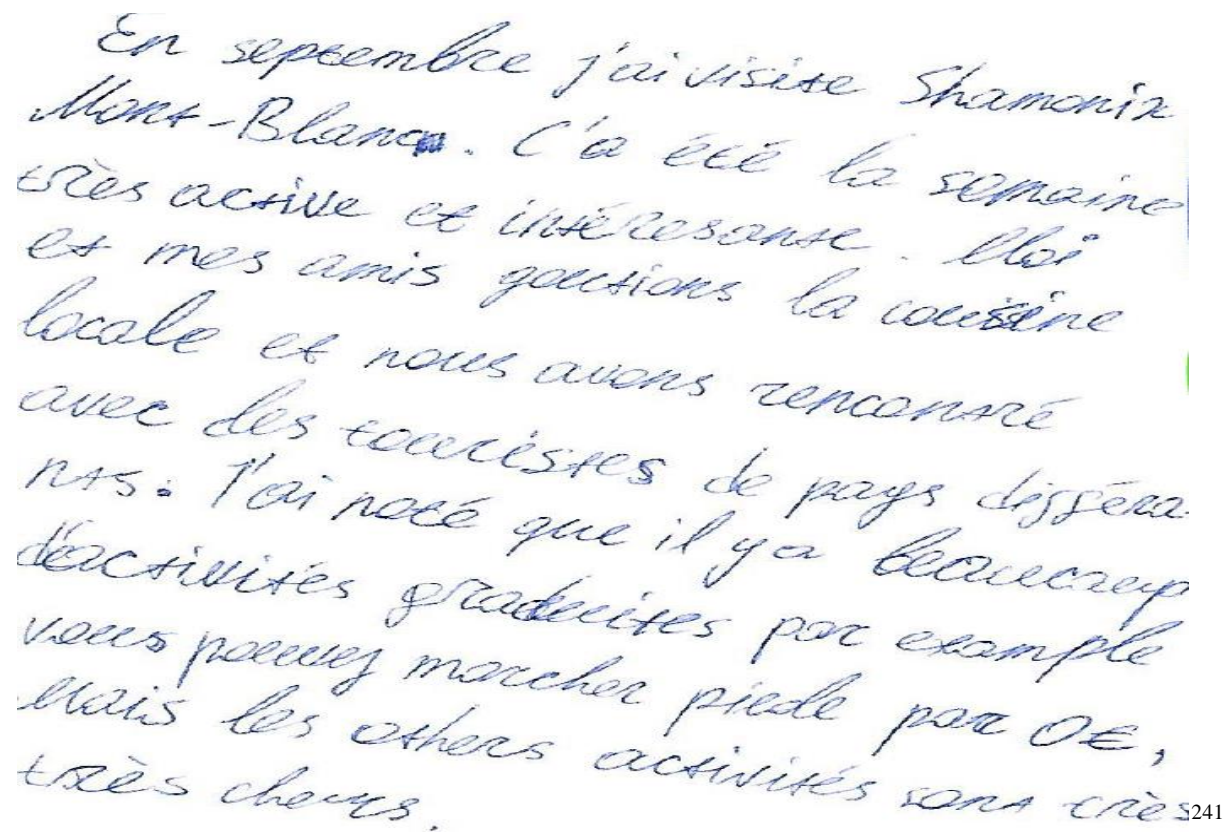 En septembre j'ai visité Shamonix
Mont-Blanc. C'a été la semaine
très active et intéresante. Moi
et mes amis goutions la couisine
locale et nous avons rencontré
avec des touristes de pays différa
nts. J'ai noté que il y a beaucoup
d'activités graduites par example
vous pouvez marcher piede par 0€,
Mais les others activités sont très
très cheurs.
241